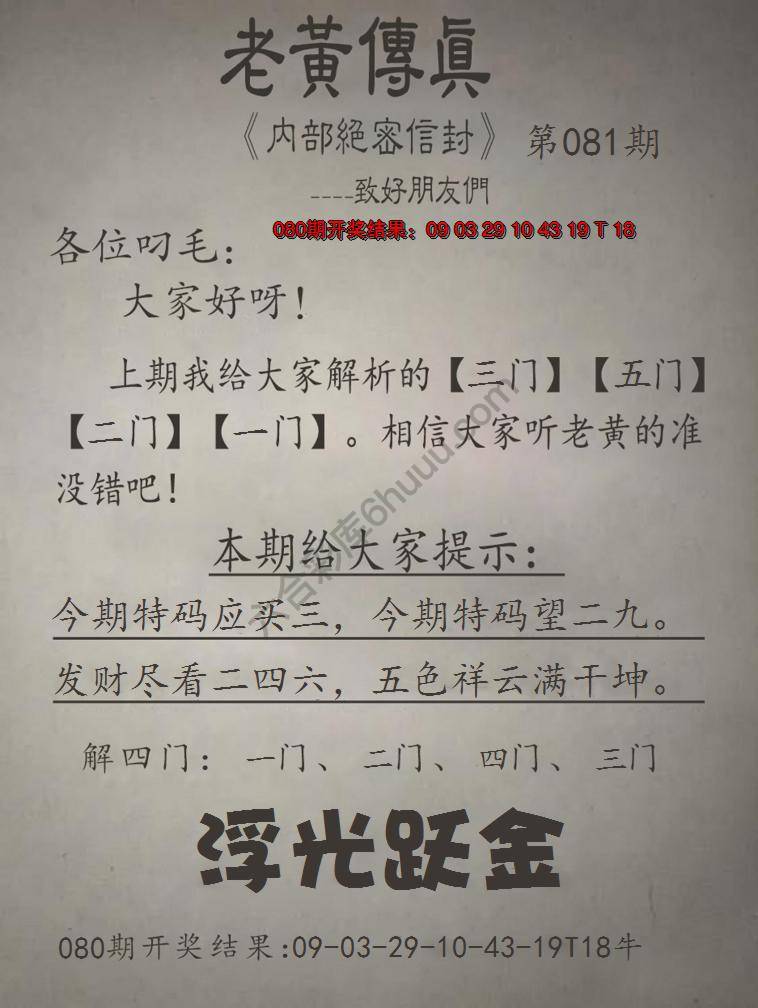 老黃傳真
《内部絕密信封》 第081期
----致好朋友們
080期开奖结果：09 03 29 10 43 19 T 18
各位叼毛：
大家好呀！
上期我给大家解析的【三门】【五门】
【二门】【一门】。相信大家听老黄的准
没错吧！
本期给大家提示：
今期特码应买三，今期特码望二九。
发财尽看二四六，五色祥云满干坤。
解四门： 一门、 二门、 四门、 三门
浮光跃金
080期开奖结果:09-03-29-10-43-19T18牛
六合彩库6huuu.com